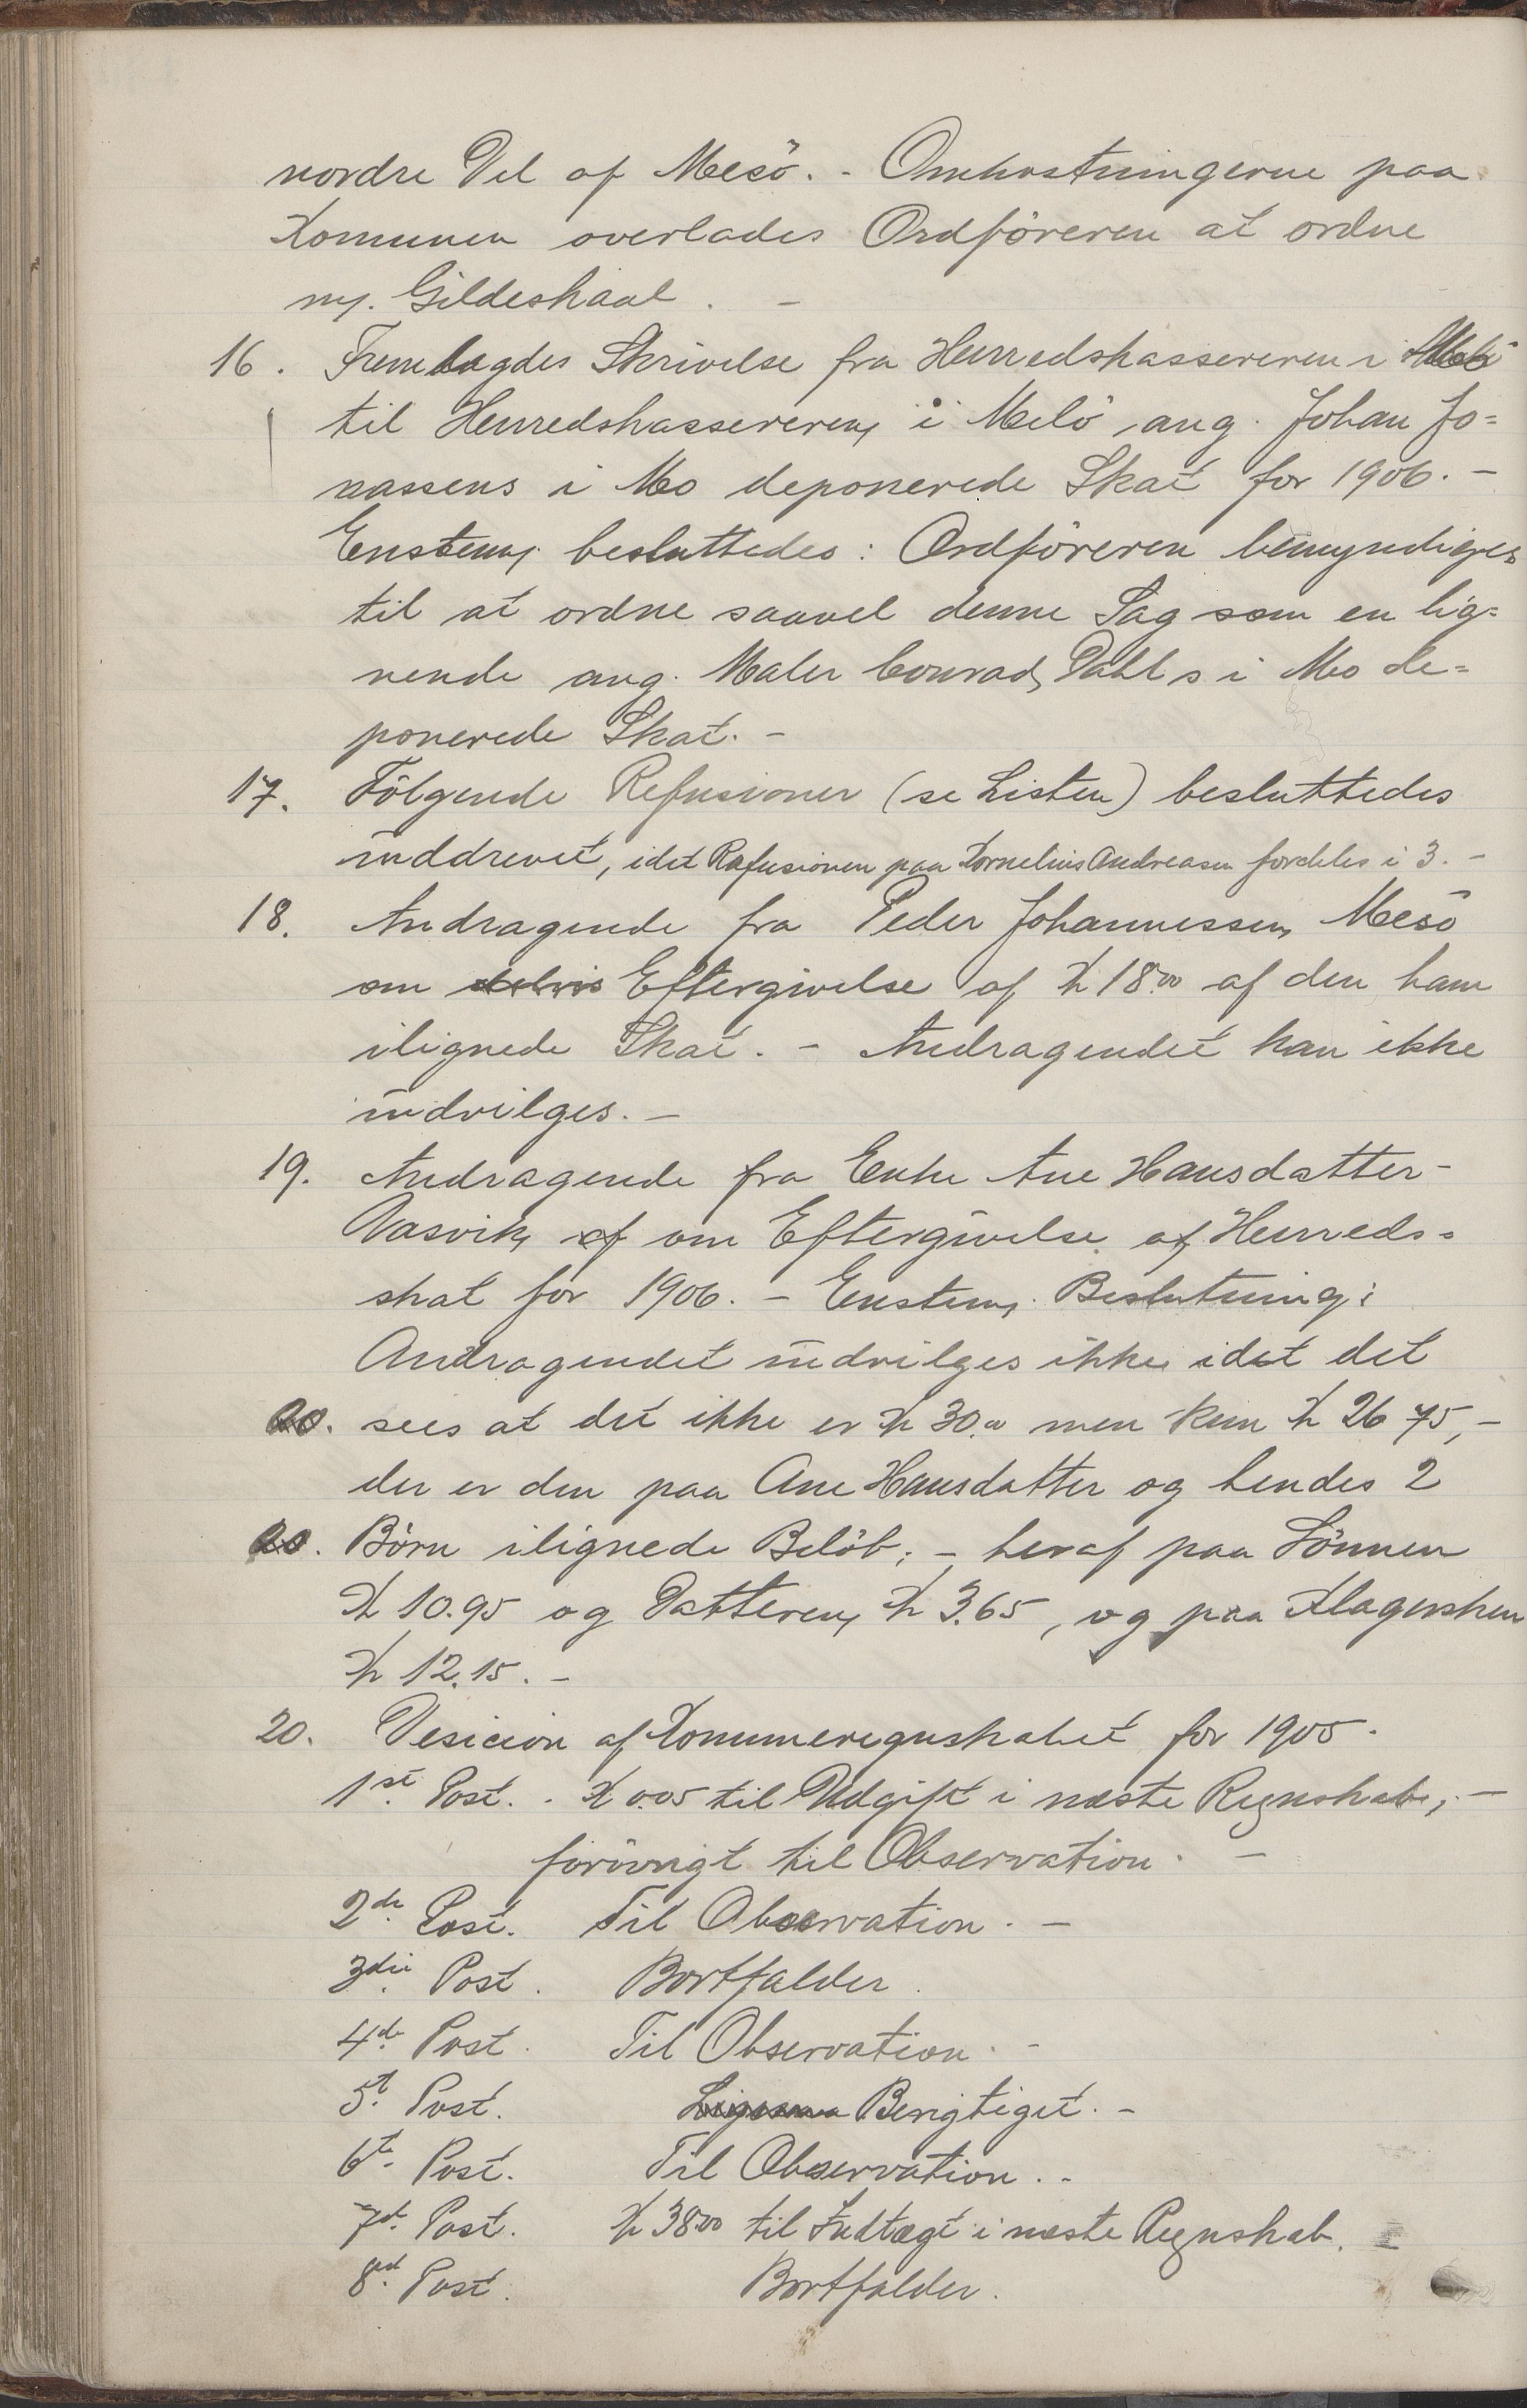 nordre Del af Mesö. - Omkostningerne paa
Komunen overlades Ordföreren at ordne
m/. Gildeskaal. -
16. Fremlagdes Skrivelse fra Herredskassereren i
til Herredskassereren i Melö ang. Johan Jo=
nassens i Mo deponerede Skat for 1906. -
Enstem. besluttedes: Ordföreren bemyndiges
til at ordne saavel denne Sag som en lig=
nende ang. Maler Conrad Dahls i Mo de=
ponerede Skat. -
17. Fölgende Refusioner (se Listen) besluttedes
inddrevet, idet Refusionen paa Kornelius Andreasen fordeles i 3. -
18. Andragende fra Peder Johannessen Mesö
om delvis Eftergivelse af K 18.00 af den ham
ilignede Skat. - Andragendet kan ikke
indvilges. -
19. Andragende fra Enke Ane Hansdatter -
Vasvik af om Eftergivelse af Herreds=
skat for 1906. - Enstem. Beslutning:
Andragendet indvilges ikke idet det
20. sees at det ikke er K 30.00 men kun K 26 75, -
der er den paa Ane Hansdatter og hendes 2
20. Börn ilignede Belöb; - heraf paa Sönnen
K 10.95 og Datteren K 3.65, og paa Klagersken
K 12.15. -
20. Desicion af Komuneregnskabet for 1905.
1st. Post. - K 0.05 til Udgift i næste Regnskab, -
forövrigt til Observation. -
2de. Post. Til Observation. -
3die. Post. Bortfalder.
4de. Post. Til Observation. -
5t. Post. Ligesaa Berigtiget. -
6te. Post. Til Observation. -
7de. Post. K 38.00 til Indtægt i næste Regnskab. -
8de. Post. Bortfalder.